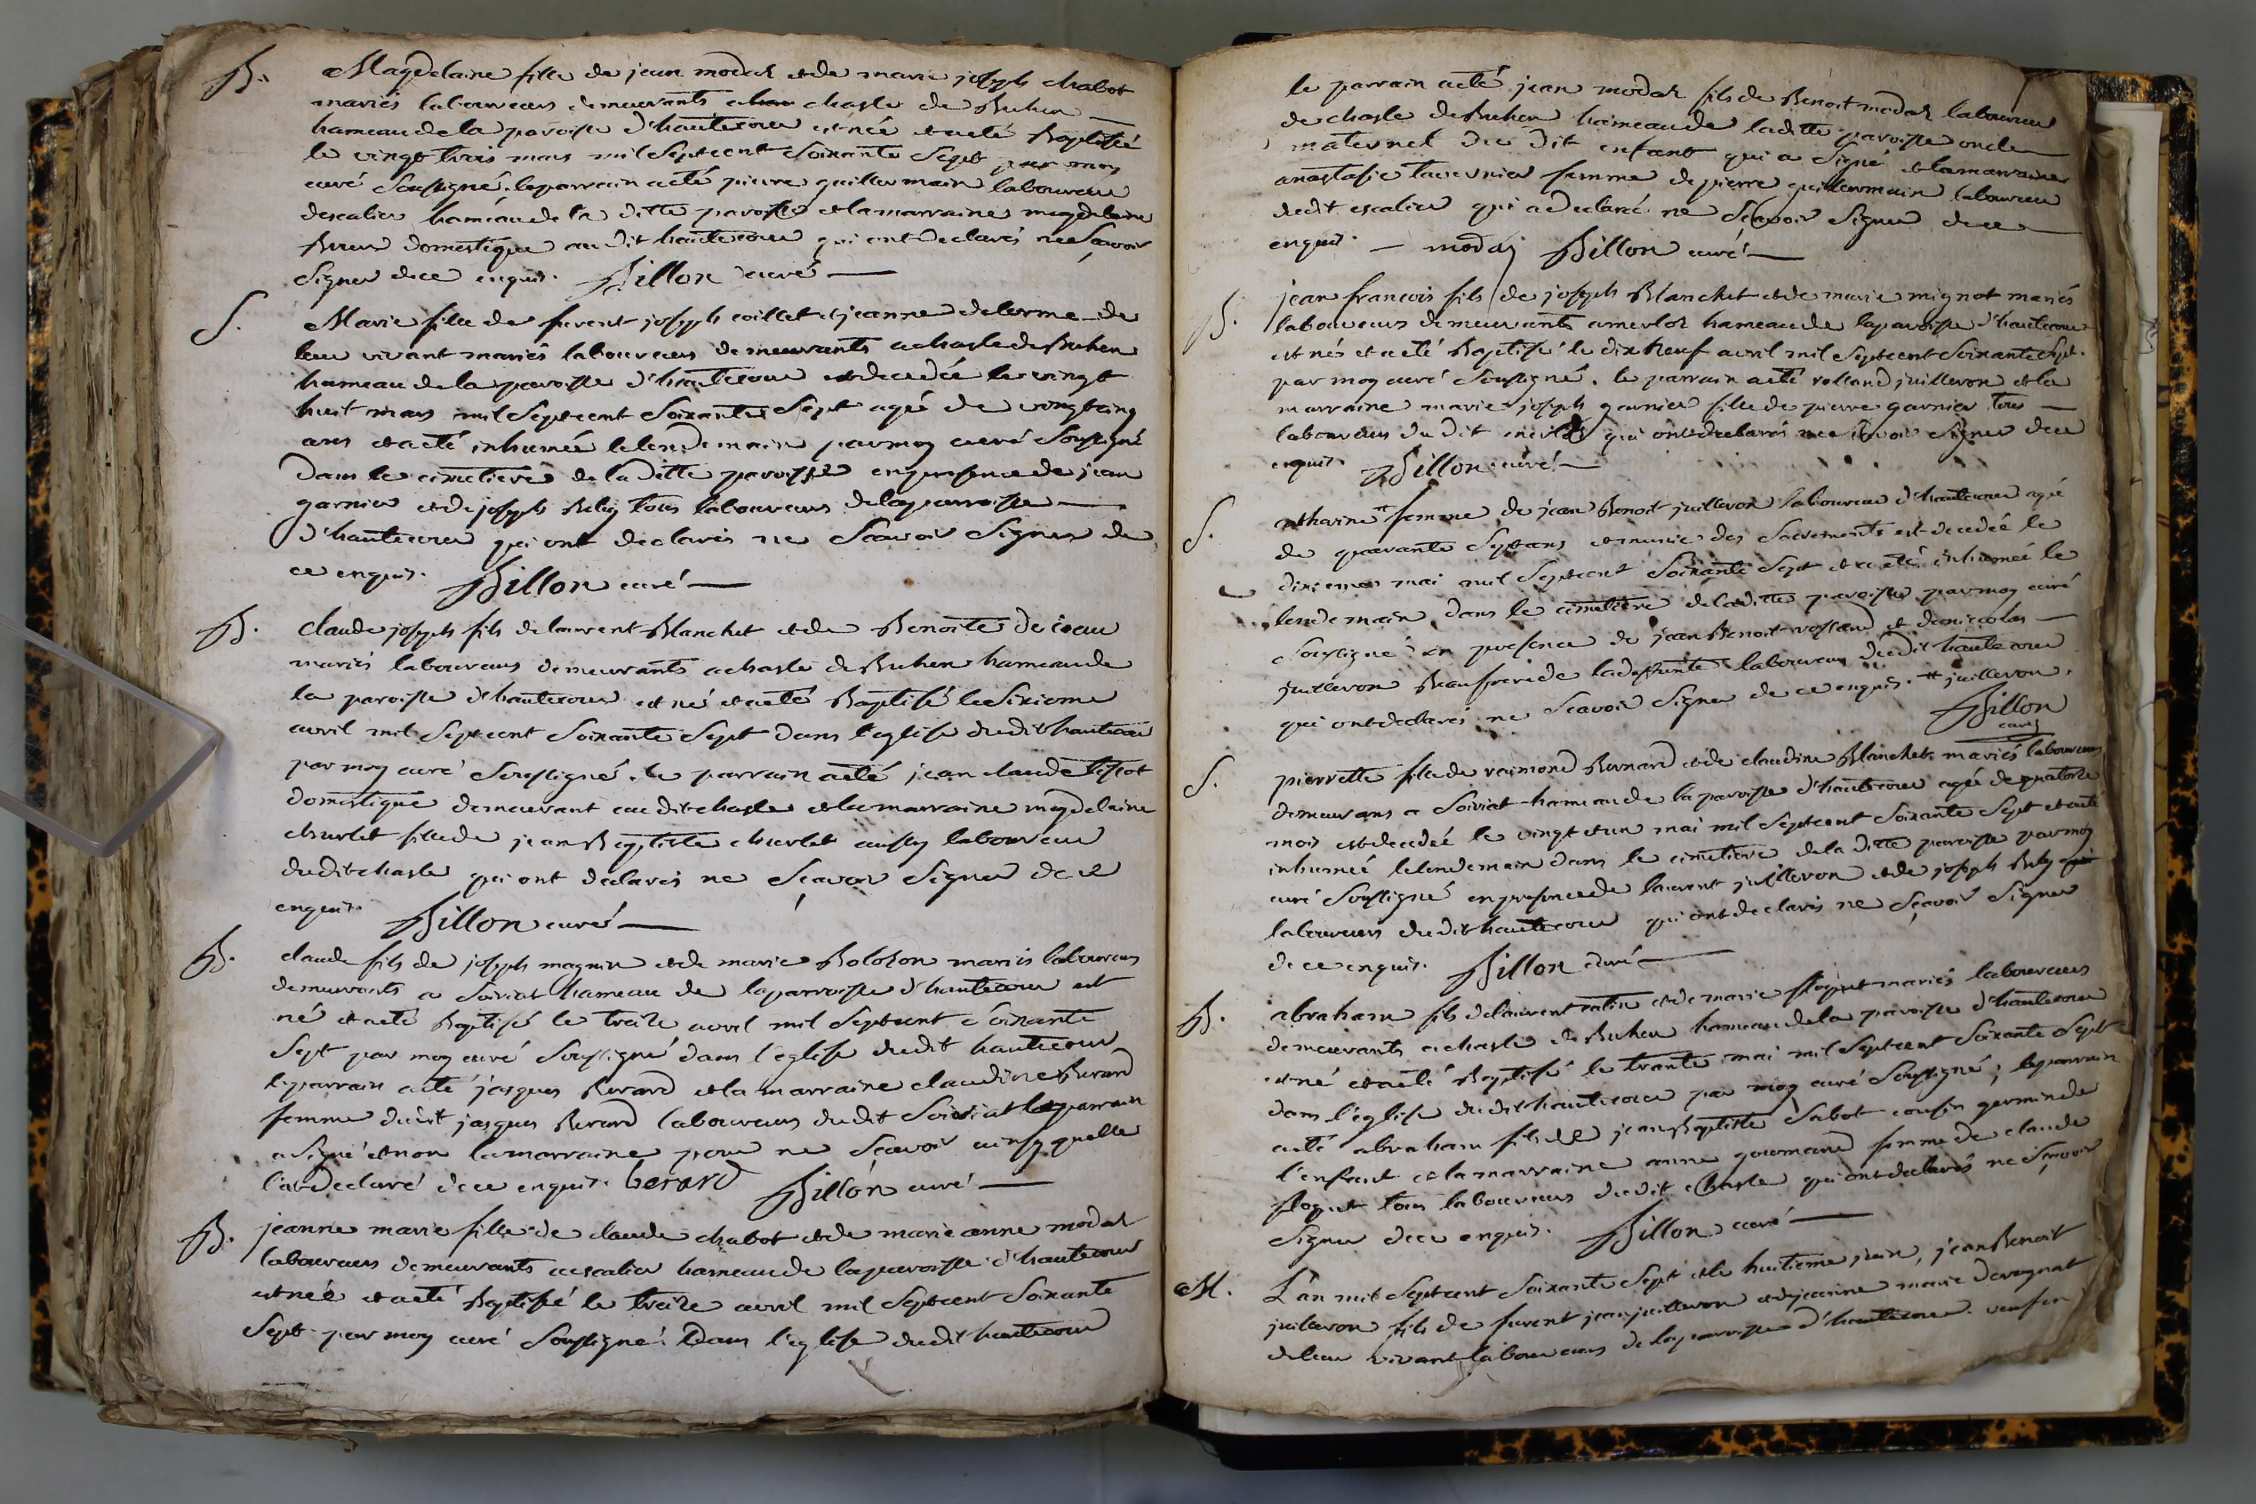 B. Magdelaine fille de jean modas et de marie joseph chabot
mariés laboureurs demeurants a chasle de Buhen
hameau de la paroisse d'hautecour est née et a eté Baptisée
le vingt trois mars mil Sept cent Soixante Sept par moy
curé Soussigné. le parrain a eté pierre guillermain laboureur
descalier hameau de la ditte paroisse et la marraine magdelaine
domestique au dit hautecour qui ont declarés ne Sçavoir
Signer de ce enquis. Billon curé
S. Marie fille de furent joseph coillet et jeanne delorme de
leur vivant mariés laboureurs demeurants a chasle de Buhen
hameau de la paroisse d'hautecour est decedée le vingt
huit mars mil Sept cent Soixante Sept agée de vingt cinq
ans et a eté inhumée le lendemain par moy curé Soussigné
Dans le cimetiere de la ditte paroisse en presence de jean
garnier et de joseph Buly tous laboureurs de la parroisse
d'hautecour qui ont declarés ne Sçavoir Signer de
ce enquis. Billon curé
B. claude joseph fils de laurent Blanchet et de Benoite
mariés laboureurs demeurants a chasle de Buhen hameau de
la paroisse d'hautecour est né et a eté Baptisé le Sixieme
avril mil Sept cent Soixante Sept dans l'eglise du dit hautecour
par moy curé Soussigné. le parrain a eté jean claude tissot
domestique demeurant au dit chasle et la marraine magdelaine
churlet fille de jean Baptiste churlet aussy laboureur
du dit chasle qui ont declarés ne Sçavoir Signer de ce
enquis. Billon curé
B. claude fils de joseph magnin et de marie Bolozon mariés laboureurs
demeurants a Soiriat hameau de la parroisse d'hautecour est
né et a eté Baptisé le treize avril mil Sept cent Soixante
Sept par moy curé Soussigné dans l'eglise du dit hautecour
le parrain a eté jacques Berard et la marraine claudine Berard
femme du dit jacques Berard laboureurs du dit Soiriat le parrain
a Signé et non la marraine pour ne Sçavoir ainsy quelle
l'at Declaré de ce enquis. berard Billon curé
B. jeanne marie fille de claude chabot et de marie anne modas
laboureurs demeurants a escalier hameau de la paroisse d'hautecour
est née et a eté Baptisée le treize avril mil Sept cent Soixante
Sept par moy curé Soussigné. Dans l'eglise du dit hautecour
le parrain a eté jean modas fils de Benoit modas laboureur
de chasle de Buhen hameau de la ditte paroisse oncle
maternel du dit enfant qui a Signé et la marraine
anastasie tavernier femme de pierre guillermain laboureur
du dit escalier qui a declaré ne Sçavoir Signer de ce
enquis. — modas Billon curé
B. jean francois fils de joseph Blanchet et de marie mignot mariés
laboureurs demeurants a merloz hameau de la paroisse d'hautecour
est nés et a eté Baptisé le dix neuf avril mil Sept cent Soixante Sept.
par moy curé Soussigné. le parrain a eté rolland juilleron et la
marraine marie joseph garnier fille de pierre garnier tous
laboureurs du dit merloz qui ont declarés ne Sçavoir Signer de ce
enquis. Billon curé
S. catherine # femme de jean Benoit juilleron laboureur d'hautecour agée
de quarante Sept ans et munie des Sacrements est decedée le
mai mil Sept cent Soixante Sept et a eté inhumée le
lendemain dans le cimetiere de la ditte paroisse par moy curé
Soussigné en presence de jean Benoit rolland et de nicolas
juilleron Beaufrere de la deffunte laboureurs du dit hautecour
qui ont declarés ne Sçavoir Signer de ce enquis. # juilleron.
Billon
curé
S. pierrette fille de raimond Bernard et de claudine Blanchet mariés laboureurs
demeurans a Soiriat hameau de la paroisse d'hautecour agée de quatorze
mois est decedée le vingt et un mai mil Sept cent Soixante Sept et a eté
inhumée le lendemain dans le cimetiere de la ditte paroisse par moy
curé Soussigné en presence de laurent juilleron et de joseph Buly
laboureurs du dit hautecour qui ont declarés ne Sçavoir Signer
de ce enquis. Billon curé
B. abraham fils de laurent et de marie floquet mariés laboureurs
demeurants a chasle de Buhen hameau de la paroisse d'hautecour
est né et a eté Baptisé le trante mai mil Sept cent Soixante Sept
dans l'eglise du dit hautecour par moy curé Soussigné; le parrain
a eté abraham fils de jean Baptiste cousin germin de
l'enfant et la marraine anne gourmand femme de claude
floquet tous laboureurs du dit chasle qui ont declarés ne Sçavoir
Signer de ce enquis. Billon curé
M. L'an mil Sept cent Soixante Sept et le huitieme juin, jean Benoit
juilleron fils de furent jean juilleron et de jeanne marie
de leur vivant laboureurs de la parroisse d'hautecour. veuf en